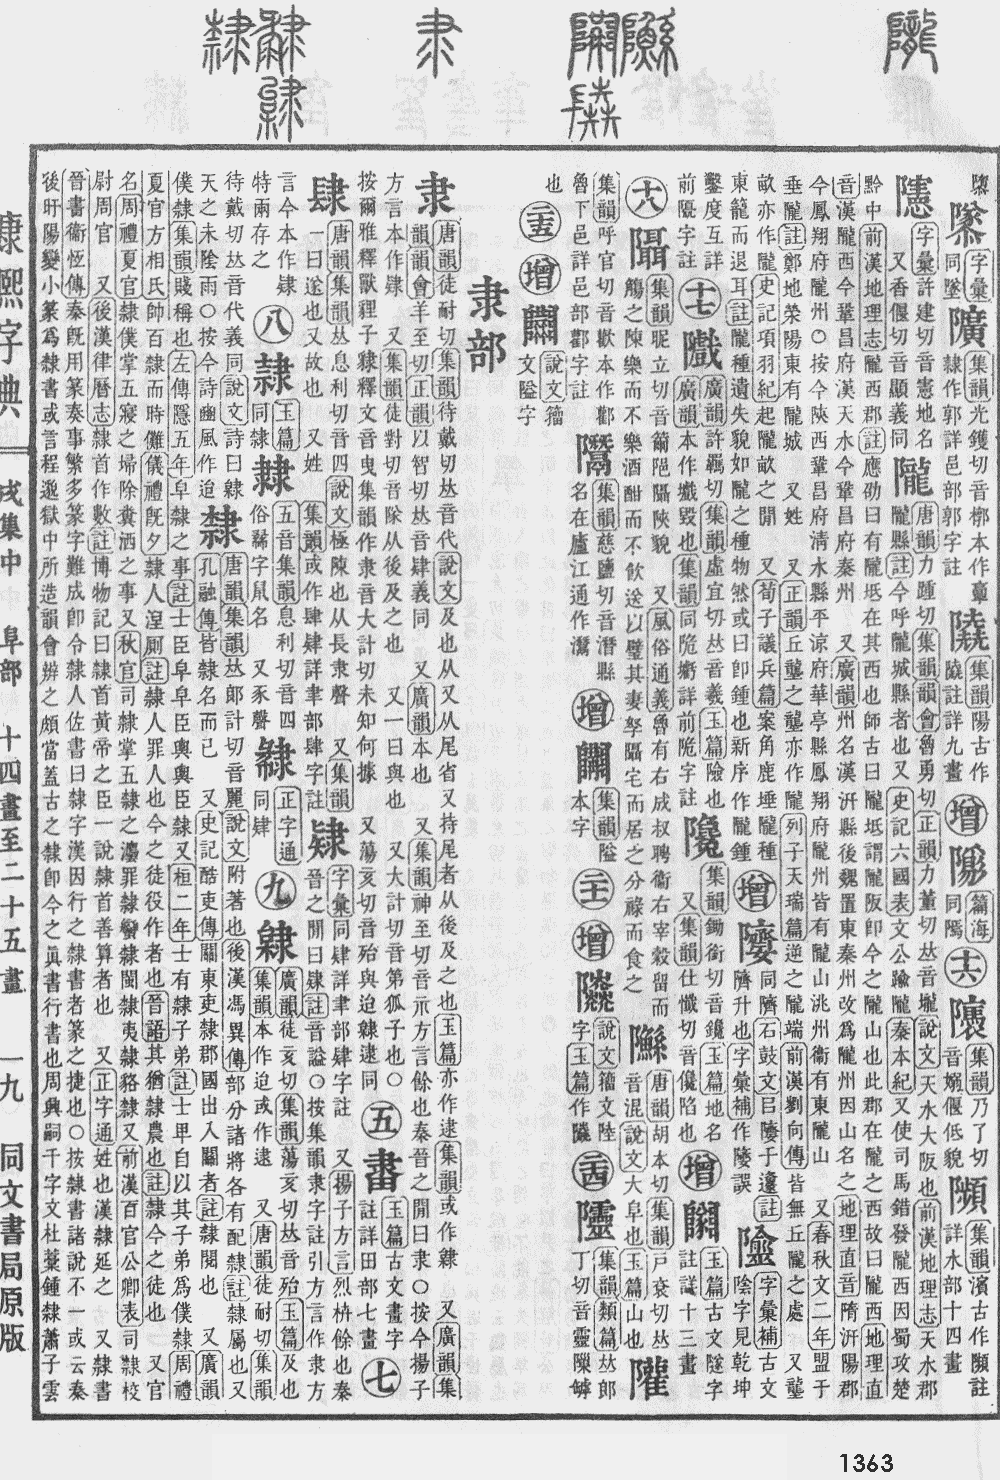 字彙同墜
集韻光鑊切音椁本作𩫏
隸作郭詳邑部郭字註
集韻陽古作
隢註詳九畫
增
篇海
同隝
十六
集韻乃了切
音嫋偃低貌
集韻濱古作瀕註
詳水部十四畫
字彙許建切音憲地名
又香偃切音顯義同
隴
唐韻力踵切集韻韻會魯勇切正韻力董切𠀤音壠說文天水大阪也前漢地理志天水郡
隴縣註今呼隴城縣者也又史記六國表文公踰隴秦本紀又使司馬錯發隴西因蜀攻楚
黔中前漢地理志隴西郡註應劭曰有隴坻在其西也師古曰隴坻謂隴阪卽今之隴山也此郡在隴之西故曰隴西地理直
音漢隴西今鞏昌府漢天水今鞏昌府秦州 又廣韻州名漢汧縣後魏置東秦州改爲隴州因山名之地理直音隋汧陽郡
今鳳翔府隴州○按今陝西鞏昌府淸水縣平涼府華亭縣鳳翔府隴州皆有隴山洮州衞有東隴山 又春秋文二年盟于
垂隴註鄭地滎陽東有隴城 又姓 又正韻丘壟之壟亦作隴列子天瑞篇逆之隴端前漢劉向傳皆無丘隴之處 又壟
畝亦作隴史記項羽紀起隴畝之閒 又荀子議兵篇案角鹿埵隴種
東籠而退耳註隴種遺失貌如隴之種物然或曰卽鍾也新序作隴鍾
增
同隮石鼓文𨸏隮于邍註
隮升也字彙補作隮誤
字彙補古文
陰字見乾坤
鑿度互詳
前隁字註
十七
隵
廣韻許羈切集韻虛宜切𠀤音羲玉篇險也
廣韻本作巇毀也集韻同陒㙪詳前陒字註
集韻鋤銜切音鑱玉篇地名
又集韻仕懺切音儳陷也
增
玉篇古文隧字
註詳十三畫
十八
集韻昵立切音𦌊陒隬陝貌 又風俗通義魯有右成叔聘衞右宰穀留而
觴之陳樂而不樂酒酣而不飮送以璧其妻孥隬宅而居之分祿而食之
唐韻胡本切集韻戸衮切𠀤
音混說文大阜也玉篇山也
集韻呼官切音歡本作酄
魯下邑詳邑部酄字註
集韻慈鹽切音潛縣
名在廬江通作灊
增
集韻隘
本字
二十
增
說文籀文陸
字玉篇作䧙
二十四
集韻類篇𠀤郎
丁切音靈隟罅
也
二十五
增
說文籀
文隘字
隶部
隶
唐韻徒耐切集韻待戴切𠀤音代說文及也从又从尾省又持尾者从後及之也玉篇亦作逮集韻或作隸 又廣韻集
韻韻會羊至切正韻以智切𠀤音肄義同 又廣韻本也 又集韻神至切音示方言餘也秦晉之閒曰隶○按今揚子
方言本作肄 又集韻徒對切音隊从後及之也 又一曰與也 又大計切音第狐子也○
按爾雅釋獸貍子豾釋文音曳集韻作隶音大計切未知何據 又蕩亥切音殆與迨隸逮同
五
畫
玉篇古文畫字
註詳田部七畫
七
肆
唐韻集韻𠀤息利切音四說文極陳也从長隶聲 又集韻
一曰遂也又故也 又姓 集韻或作肆肆詳聿部肆字註
字彙同肄詳聿部肆字註 又揚子方言烈枿餘也秦
晉之閒曰肄註音謚○按集韻隶字註引方言作隶方
言今本作肄
特兩存之
八
隸
玉篇
同隸
五音集韻息利切音四
俗鬄字鼠名 又豕聲
正字通
同肆
九
隸
廣韻徒亥切集韻蕩亥切𠀤音殆玉篇及也
集韻本作迨或作逮 又唐韻徒耐切集韻
待戴切𠀤音代義同說文詩曰隸
天之未陰雨○按今詩豳風作迨
隸
唐韻集韻𠀤郎計切音麗說文附著也後漢馮異傳部分諸將各有配隸註隸屬也又
孔融傳皆隸名而已 又史記酷吏傳關東吏隸郡國出入關者註隸閱也 又廣韻
僕隸集韻賤稱也左傳隱五年皁隸之事註士臣皁皁臣輿輿臣隸又桓二年士有隸子弟註士𤰞自以其子弟爲僕隸周禮
夏官方相氏帥百隸而時儺儀禮旣夕隸人涅厠註隸人罪人也今之徒役作者也晉語其猶隸農也註隸今之徒也 又官
名周禮夏官隸僕掌五寢之埽除糞洒之事又秋官司隸掌五隸之灋罪隸蠻隸閩隸夷隸貉隸又前漢百官公卿表司隸校
尉周官 又後漢律曆志隸首作數註博物記曰隸首黃帝之臣一說隸首善算者也 又正字通姓也漢隸延之 又隸書
晉書衞恆傳秦旣用篆奏事繁多篆字難成卽令隸人佐書曰隸字漢因行之隸書者篆之捷也○按隸書諸說不一或云秦
後旴陽變小篆爲隸書或言程邈獄中所造韻會辨之頗當蓋古之隸卽今之眞書行書也周興嗣千字文杜稾鍾隸蕭子雲
康熙字典 戌集中 阜部 十四畫至二十五畫 一九 同文書局原版
1363